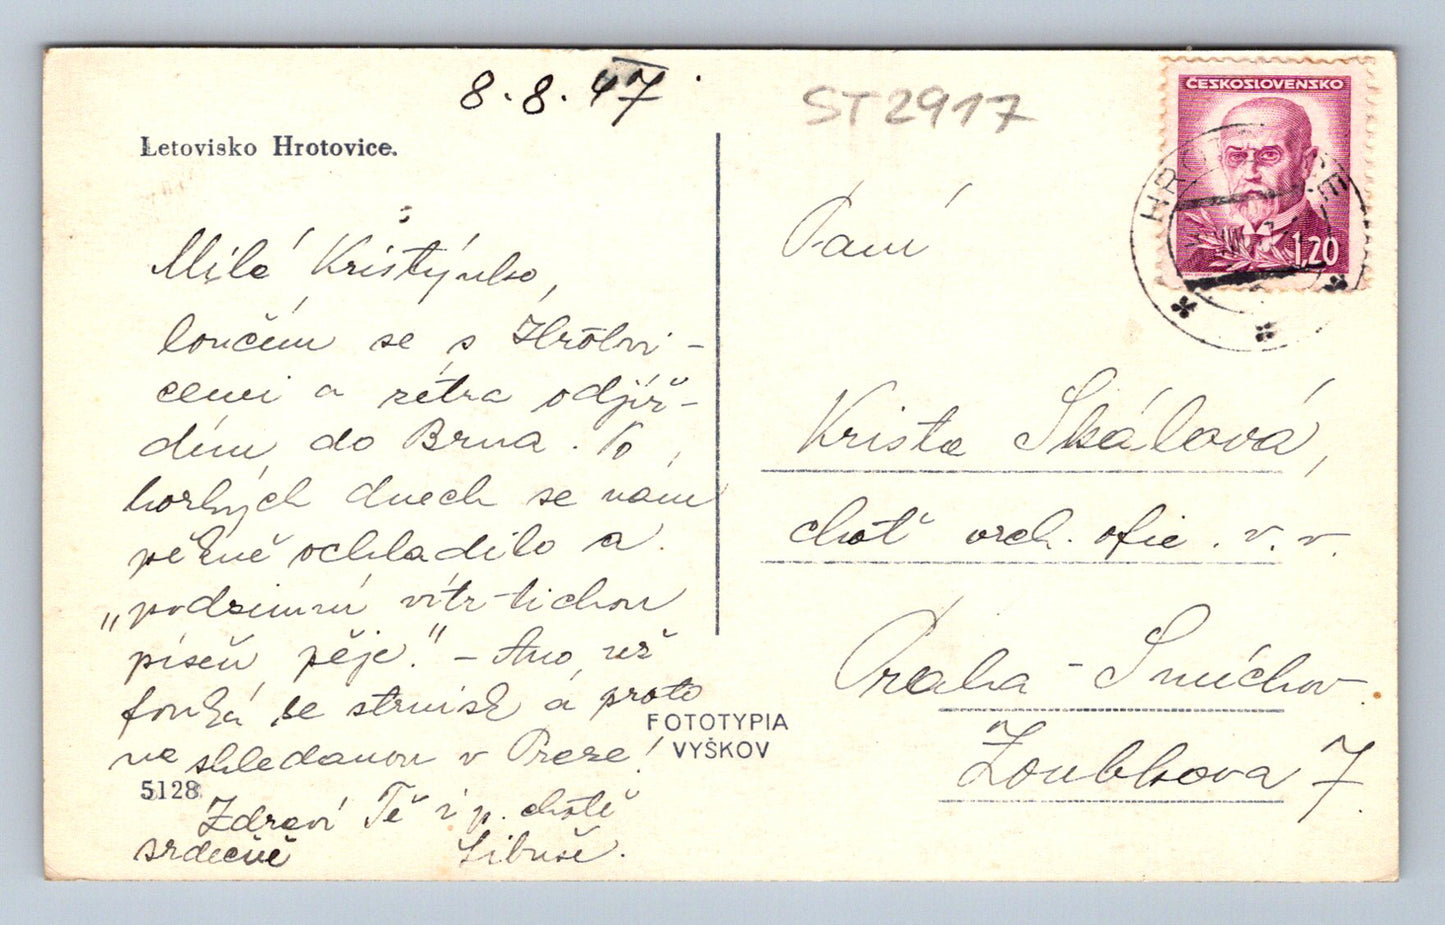 8.8.47.
ST2917
ČESKOSLOVENSKO
1,20
Letovisko Hrotovice.
Milá Kristýnko,
loučím se s Hrotovi-
cemi a zítra odjíž-
dím do Brna. Po
horkých dnech se nám
pěkně ochladilo a
„podzimní vítr tichou
píseň pěje." – Ano, už
fouká se strnisk a proto
na shledanou v Praze!
Zdraví Tě i p. chotě
srdečně Libuše.
5128
FOTOTYPIA
VYŠKOV
Paní
Krista Skálová,
choť orch. ofic. v. v.
Praha – Smíchov
Zoubkova 7.